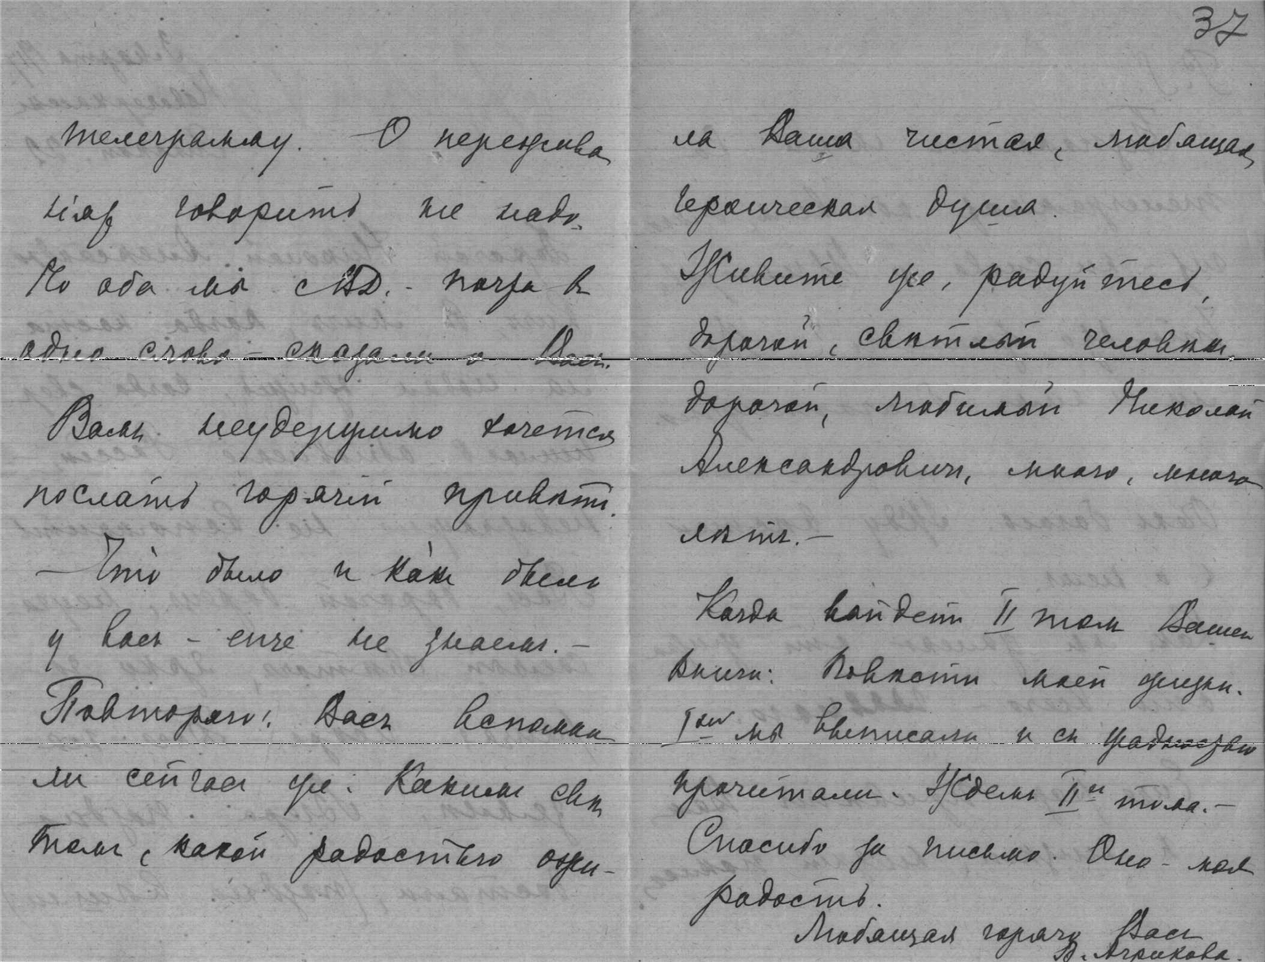 37
телеграмму. О пережива
ніях говорить не надо.
Но оба мы с
одно слово – сказали о Васъ.
Вамъ неудержимо хочется
послать горячій привѣтъ.
– Что было и какъ было
у васъ – еще не знаемъ. –
Повторяю: Васъ вспомни
ли сейчас же. Какимъ свѣ
томъ, какой радостью ожи-
ла Ваша чистая, любящая,
героическая душа.
Живите же, радуйтесь,
дорогой, свѣтлый человѣкъ,
дорогой, любимый Николай
Александровичъ, много, много
лѣтъ. –
Когда выйдетъ II томъ Вашей
книги: Повѣсти моей жизни.
Iый мы выписали и съ
прочитали. Ждемъ IIй тома. –
Спасибо за письмо. Оно – моя
радость.
Любящая горячо Васъ